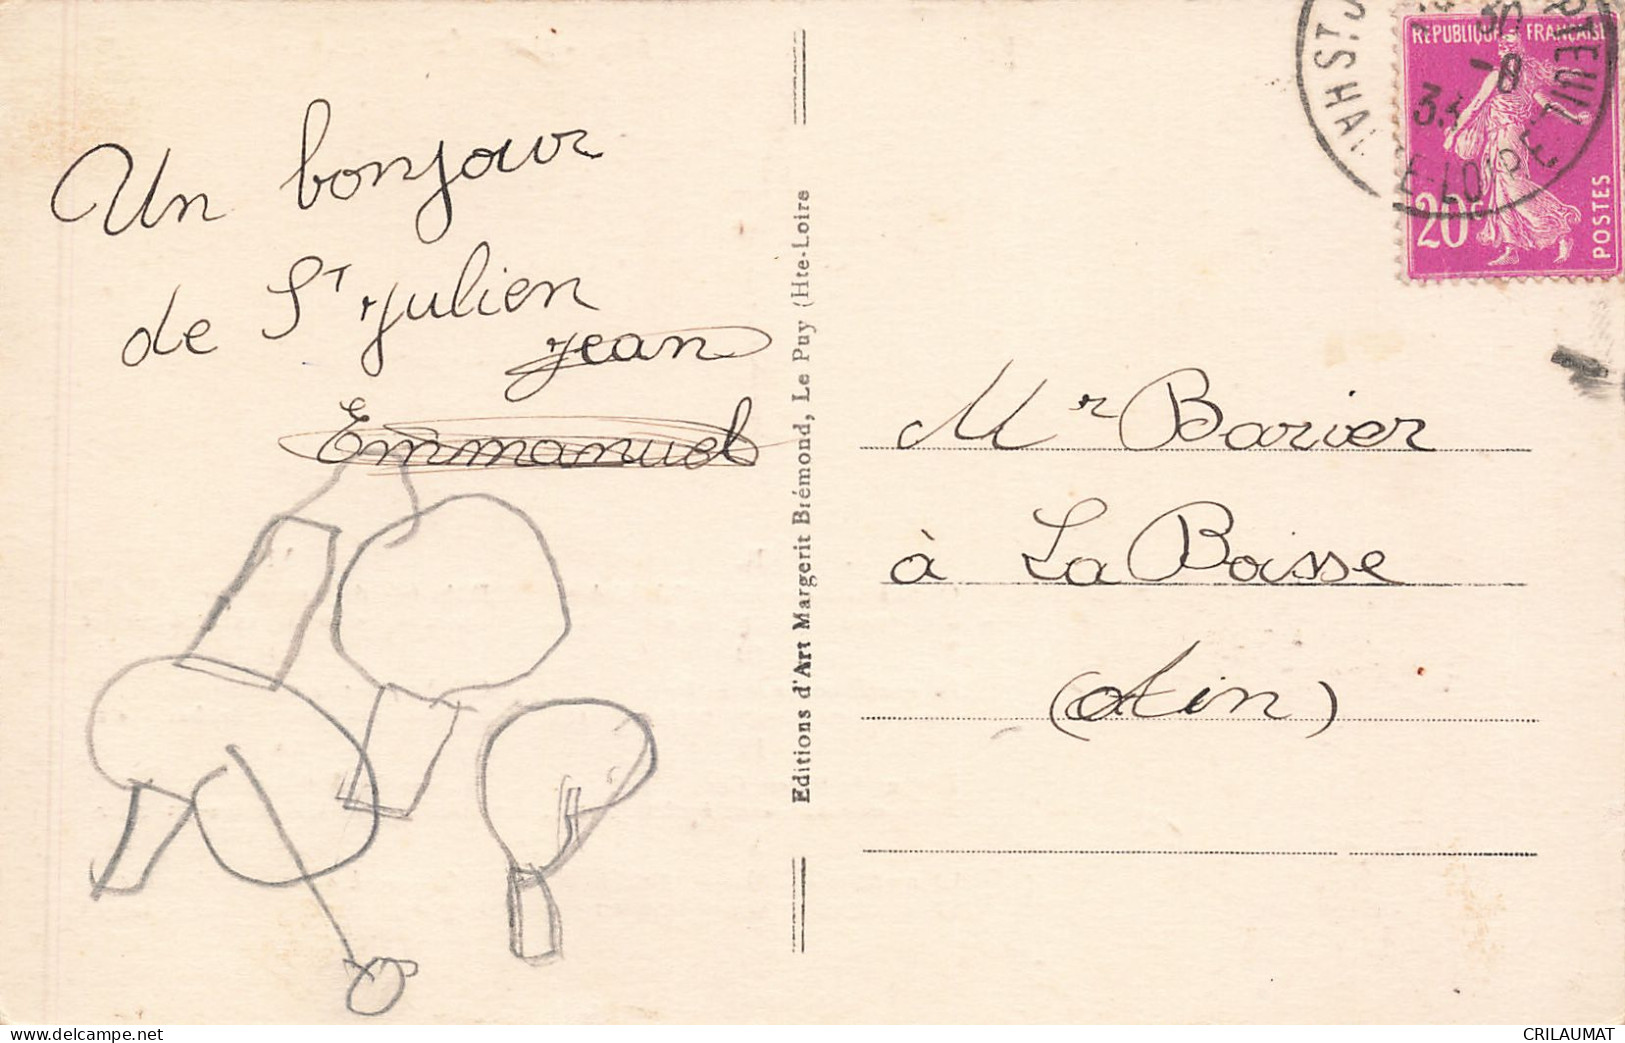 Un bonjour
de St Julien
Jean
Emmanuel
Editions d'Art Margerit Brémond, Le Puy (Hte-Loire
REPUBLIQUE FRANÇAISE
20c
POSTES
30
-8
33
ST. J
HAUTE-LOIRE
Mr Barier
à La Boisse
(Ain)
www.delcampe.net
CRILAUMAT